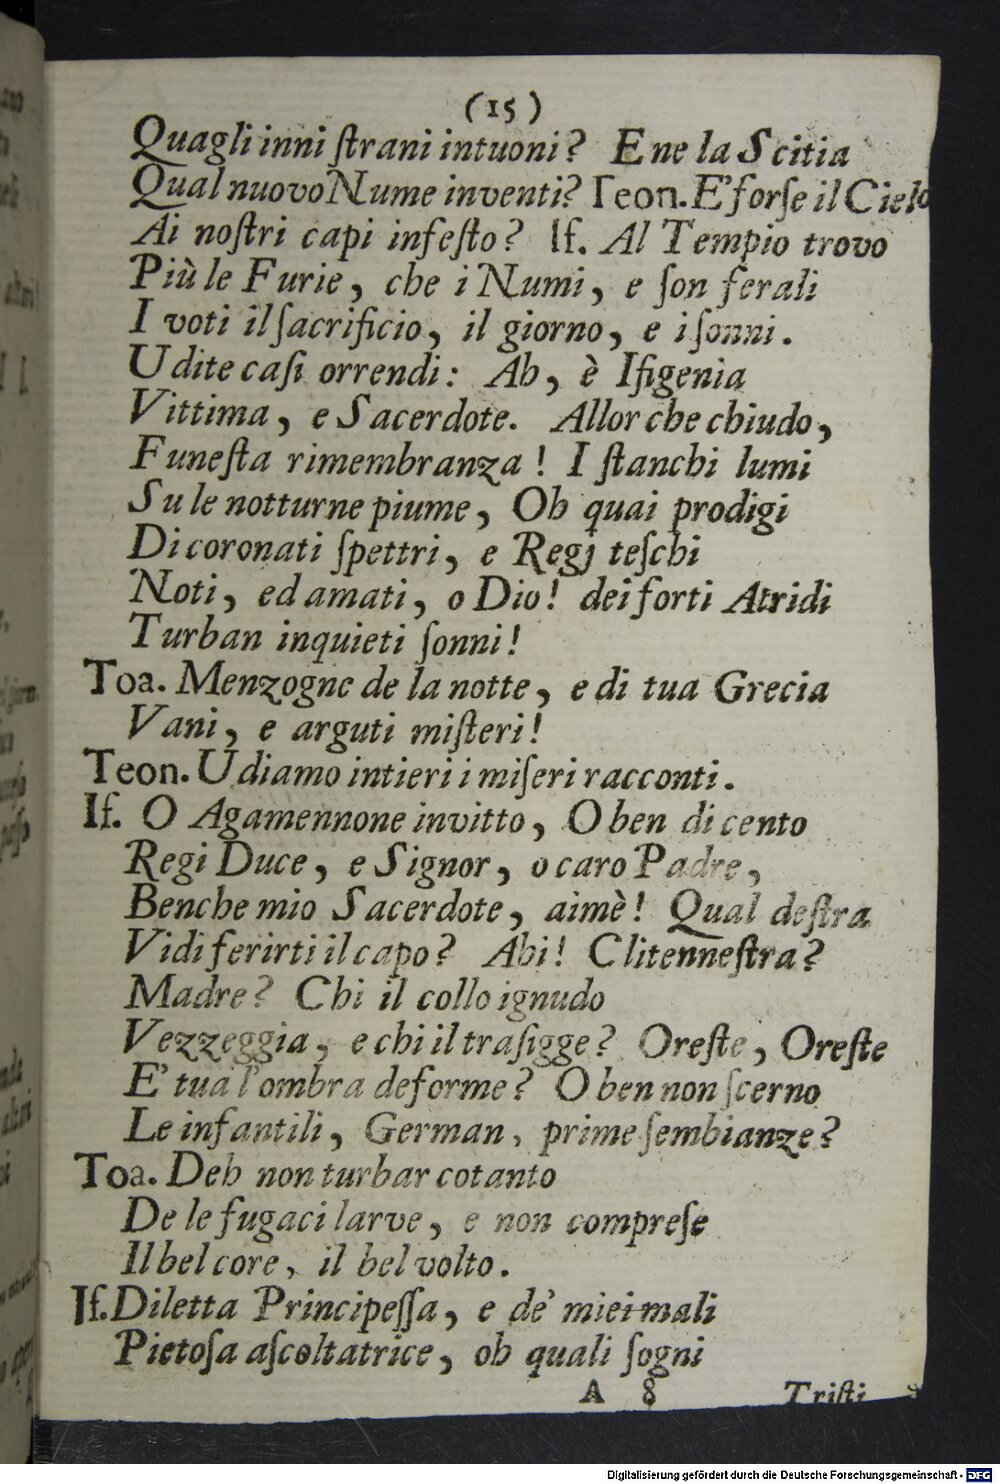 (15)
Quagli inni ſtrani intuoni? E ne la Scitia
Qual nuovo Nume inventi? Teon. E' forſe il Cielo
Ai noſtri capi infeſto? If. Al Tempio trovo
Più le Furie, che i Numi, e ſon ferali
I voti il ſacrificio, il giorno, e i ſonni.
Udite caſi orrendi: Ah, è Ifigenia
Vittima, e Sacerdote. Allor che chiudo,
Funeſta rimembranza! I ſtanchi lumi
Su le notturne piume, Oh quai prodigi
Di coronati ſpettri, e Regj teſchi
Noti, ed amati, o Dio! dei forti Atridi
Turban inquieti ſonni!
Toa. Menzogne de la notte, e di tua Grecia
Vani, e arguti miſteri!
Teon. Udiamo intieri i miſeri racconti.
If. O Agamennone invitto, O ben di cento
Regi Duce, e Signor, o caro Padre,
Benche mio Sacerdote, aimè! Qual deſtra
Vidi ferirti il capo? Ahi! Clitenneſtra?
Madre? Chi il collo ignudo
Vezzeggia, e chi il trafigge? Oreſte, Oreſte
E' tua l'ombra deforme? O ben non ſcerno
Le infantili, German, prime ſembianze?
Toa. Deh non turbar cotanto
De le fugaci larve, e non compreſe
Il bel core, il bel volto.
If. Diletta Principeſſa, e de' miei mali
Pietoſa aſcoltatrice, oh quali ſogni
A 8 Triſti
Digitalisierung gefördert durch die Deutsche Forschungsgemeinschaft - DFG